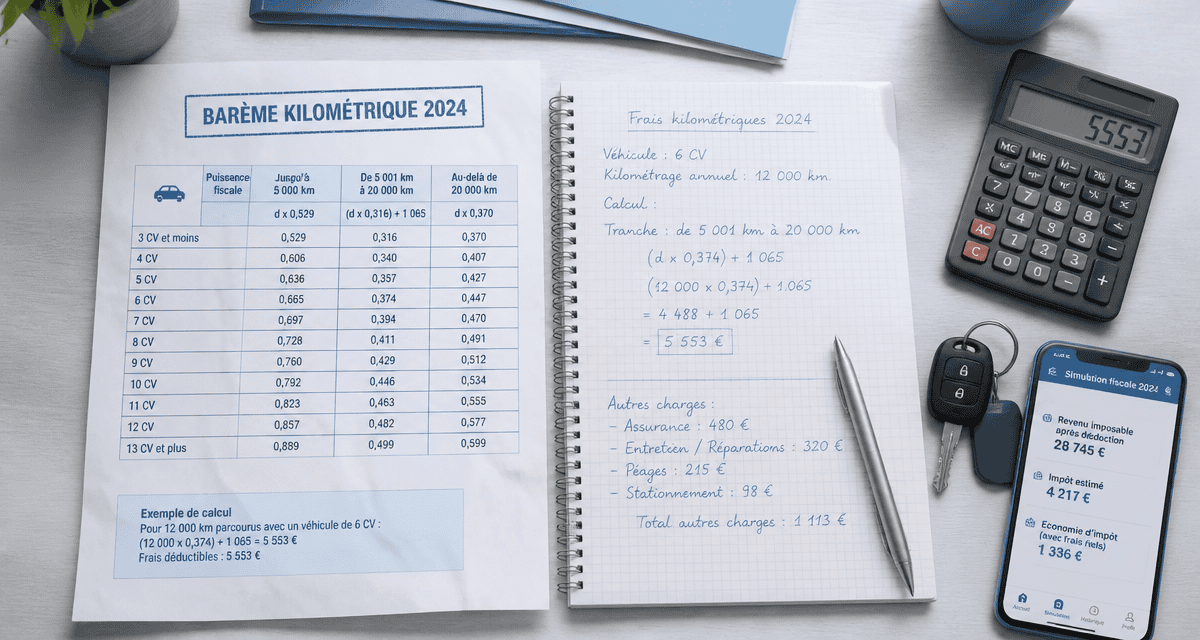 BARÈME KILOMÉTRIQUE 2024
Puissence fiscale | Jusqu'à 5 000 km | De 5 001 km à 20 000 km | Au-delà de 20 000 km
d x 0,529 | (d x 0,316) + 1 065 | d x 0,370
3 CV et moins | 0,529 | 0,316 | 0,370
4 CV | 0,606 | 0,340 | 0,407
5 CV | 0,636 | 0,357 | 0,427
6 CV | 0,665 | 0,374 | 0,447
7 CV | 0,697 | 0,394 | 0,470
8 CV | 0,728 | 0,411 | 0,491
9 CV | 0,760 | 0,429 | 0,512
10 CV | 0,792 | 0,446 | 0,534
11 CV | 0,823 | 0,463 | 0,555
12 CV | 0,857 | 0,482 | 0,577
13 CV et plus | 0,889 | 0,499 | 0,599
Exemple de calcul
Pour 12 000 km parcourus avec un véhicule de 6 CV :
(12 000 x 0,374) + 1 065 = 5 553 €
Frais déductibles : 5 553 €
Frais kilométriques 2024
Véhicule : 6 CV
Kilométrage annuel : 12 000 km.
Calcul :
Tranche : de 5 001 km à 20 000 km
(d x 0,374) + 1 065
(12 000 x 0,374) + 1.065
= 4 488 + 1 065
= 5 553 €
Autres charges :
- Assurance : 480 €
- Entretien / Réparations : 320 €
- Péages : 215 €
- Stationnement : 98 €
Total autres charges : 1 113 €
5553
MC MC M-
7 7 8 8
AC 4 8 8
C 7 2 3
0 0
Simulation fiscale 2024
Revenu imposable
après déduction
28 745 €
Impôt estimé
4 217 €
Economie d'impôt
(avec frais réels)
1 336 €
Accueil